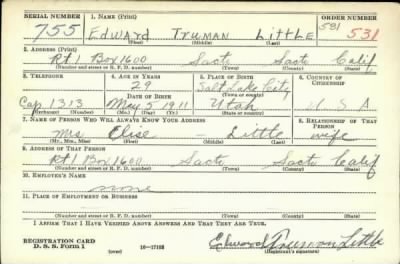 SERIAL NUMBER 1. NAME (Print) ORDER NUMBER
755 Edward Truman Little 581 531
(First) (Middle) (Last)
2. ADDRESS (Print)
Rt 1 Box 1600 Sacto Sacto Calif
(Number and street or R. F. D. number) (Town) (County) (State)
3. TELEPHONE 4. AGE IN YEARS 5. PLACE OF BIRTH 6. COUNTRY OF CITIZENSHIP
29 Salt Lake City
DATE OF BIRTH (Town or county)
Cap 1313 May 5 1911 Utah U S A
(Exchange) (Number) (Mo.) (Day) (Yr.) (State or country)
7. NAME OF PERSON WHO WILL ALWAYS KNOW YOUR ADDRESS 8. RELATIONSHIP OF THAT PERSON
Mrs Elise — Little wife
(Mr., Mrs., Miss) (First) (Middle) (Last)
9. ADDRESS OF THAT PERSON
Rt 1 Box 1600 Sacto Sacto Calif
(Number and street or R. F. D. number) (Town) (County) (State)
10. EMPLOYER'S NAME
none
11. PLACE OF EMPLOYMENT OR BUSINESS
(Number and street or R. F. D. number) (Town) (County) (State)
I AFFIRM THAT I HAVE VERIFIED ABOVE ANSWERS AND THAT THEY ARE TRUE.
REGISTRATION CARD
D. S. S. Form 1 (over) 16—17105 Edward Truman Little